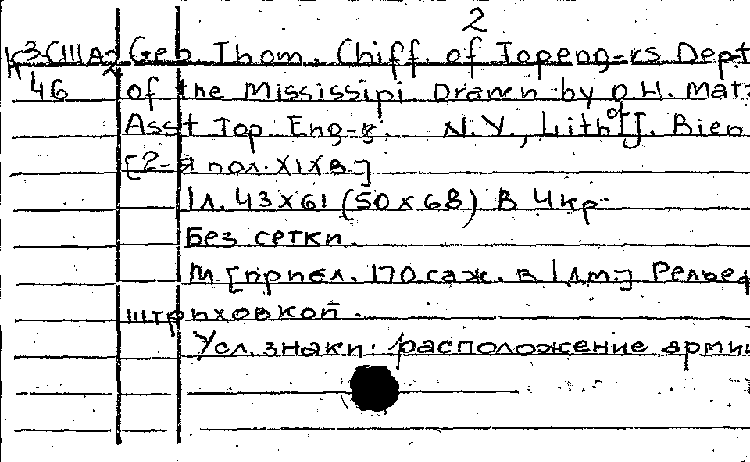 2
К 3-США2 Geo. Thom. Chiff. of Topeng-rs Dept
46 of the Mississipi Drawn by O.H. Matz
Asst Top Eng-s. N.Y., Lith of J. Bien
[2-я пол. XIX в.]
1 л. 43 x 61 (50 x 68) В 4 кр.
Без сетки.
М [прибл. 170 саж. в 1 дм.] Рельеф
штриховкой.
Усл. знаки: расположение арми